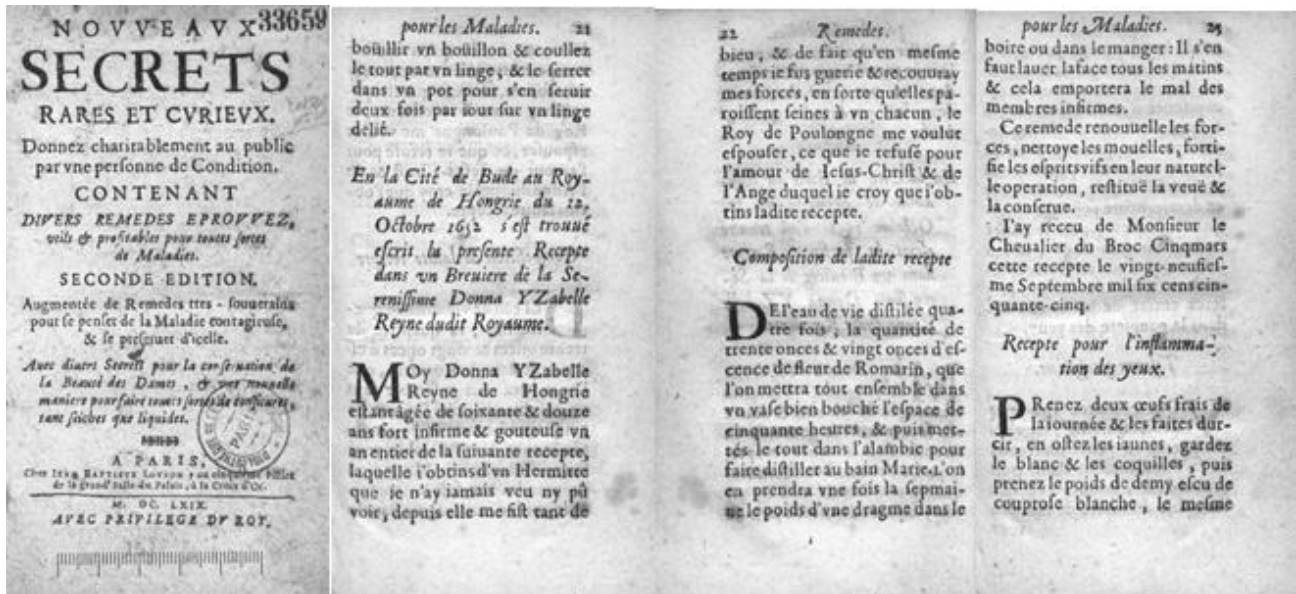 33659
NOVVEAVX
SECRETS
RARES ET CVRIEVX.
Donnez charitablement au public
par vne personne de Condition.
CONTENANT
DIVERS REMEDES EPROVVEZ,
vtils & profitables pour toutes sortes
de Maladies.
SECONDE EDITION.
Augmentée de Remedes tres-souuerains
pour se penser de la Maladie contagieuse,
& se preseruer d'icelle.
Auec diuers Secrets pour la conseruation de
la Beauté des Dames, & vne nouuelle
maniere pour faire toutes sortes de confitures,
tant seiches que liquides.
A PARIS,
Chez IEAN BAPTISTE LOYSON, au cinquiéme Pillier
de la grand' salle du Palais, à la Croix d'Or.
M. DC. LXIX.
AVEC PRIVILEGE DV ROY.
pour les Maladies. 21
boüillir vn boüillon & coullez
le tout par vn linge, & le serrer
dans vn pot pour s'en seruir
deux fois par iour sur vn linge
délié.
En la Cité de Bude au Roy-
aume de Hongrie du 12,
Octobre 1652 s'est trouué
escrit la presente Recepte
dans vn Breuiere de la Se-
renissime Donna YZabelle
Reyne dudit Royaume.
MOy Donna YZabelle
Reyne de Hongrie
estant âgée de soixante & douze
ans fort infirme & gouteuse vn
an entier de la suiuante recepte,
laquelle i'obtins d'vn Hermitte
que je n'ay iamais veu ny pû
voir, depuis elle me fist tant de
22 Remedes.
bieu, & de fait qu'en mesme
temps ie fus guerie & recouuray
mes forces, en sorte qu'elles pa-
roissent seines à vn chacun, le
Roy de Poulongne me voulut
espouser, ce que ie refusé pour
l'amour de Iesus-Christ & de
l'Ange duquel ie croy que i'ob-
tins ladite recepte.
Composition de ladite recepte
DEl'eau de vie distilée qua-
tre fois, la quantité de
trente onces & vingt onces d'es-
cence de fleur de Romarin, que
l'on mettra tout ensemble dans
vn vase bien bouché l'espace de
cinquante heures, & puis met-
tés le tout dans l'alambic pour
faire distiller au bain Marie. L'on
en prendra vne fois la sepmai-
ne le poids d'vne dragme dans le
pour les Maladies. 25
boire ou dans le manger: Il s'en
faut lauer la face tous les matins
& cela emportera le mal des
membres infirmes.
Ce remede renouuelle les for-
ces, nettoye les mouelles, forti-
fie les esprits vifs en leur naturel-
le operation, restituë la veuë &
la conserue.
I'ay receu de Monsieur le
Cheualier du Broc Cinqmars
cette recepte le vingt-neufies-
me Septembre mil six cens cin-
quante-cinq.
Recepte pour l'inflamma-
tion des yeux.
PRenez deux œufs frais de
la journée & les faites dur-
cir, en ostez les iaunes, gardez
le blanc & les coquilles, puis
prenez le poids de demy escu de
couprose blanche, le mesme